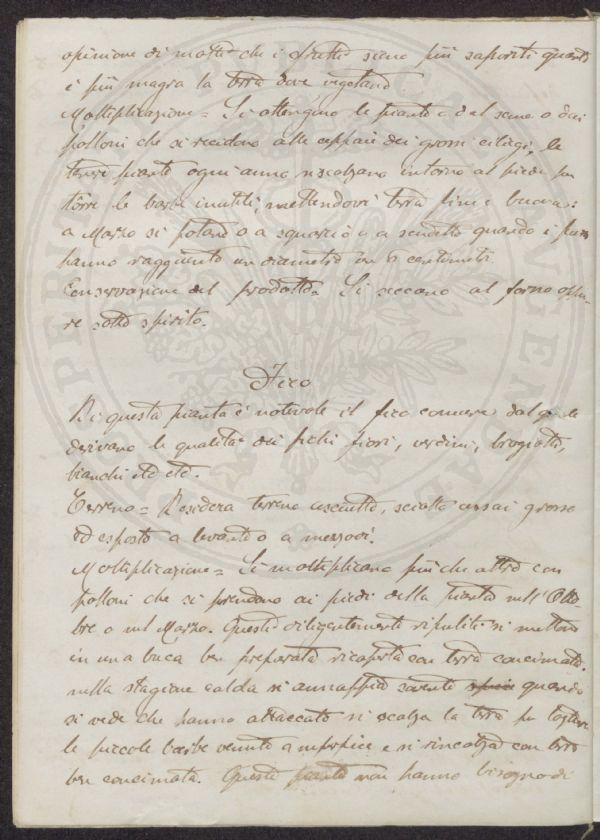 opinione di molti che i frutti siano più saporiti quanto
è più magra la terra dove vegetano
Moltiplicazione = Si ottengono le piante o dal seme o dai
polloni che si recidono alle ceppaie dei grossi ciliegi, le
piante ogni anno si scalzano intorno al piede per
tôrre le barbe inutili, mettendovi terra fine e buona:
a Marzo si potano o a squarcio o a scudetto quando i
hanno raggiunto un diametro di centimetri.
Conservazione del prodotto = Si seccano al forno oppu-
re sotto spirito.
Fico
Di questa pianta è notevole il fico comune dal quale
derivano le qualità dei fichi fiori, verdini, brogiotti,
bianchi etc etc.
Terreno = Desidera terreno asciutto, sciolto assai grosso
ed esposto a levante o a mezzodì.
Moltiplicazione = Si moltiplicano più che altro con
polloni che si prendono ai piedi della pianta nell'Otto-
bre o nel Marzo. Questi diligentemente ripuliti si mettono
in una buca ben preparata ricoperta con terra concimata.
nella stagione calda si annaffia sovente quando
si vede che hanno attaccato si scalza la terra per togliere
le piccole barbe venute a superficie e si rincalza con terra
ben concimata. Queste piante non hanno bisogno di